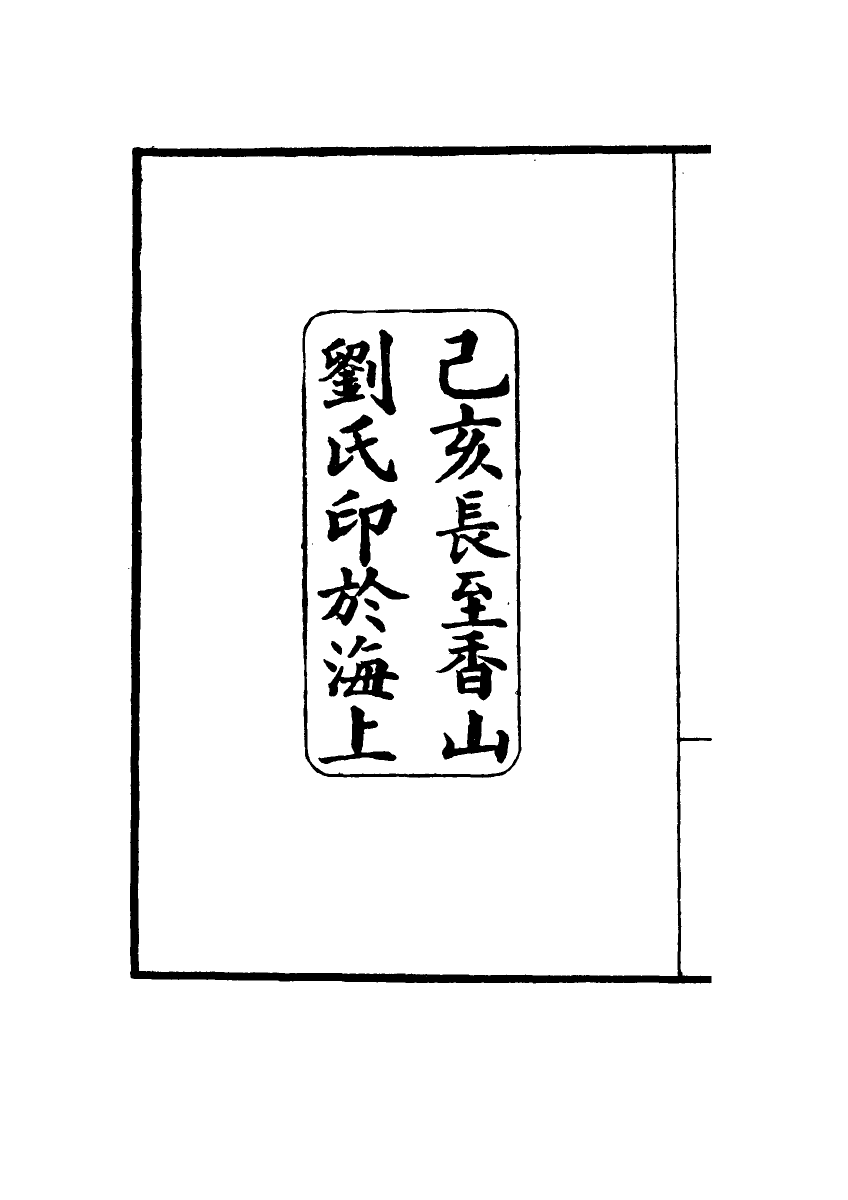 己亥長至香山
劉氏印於海上